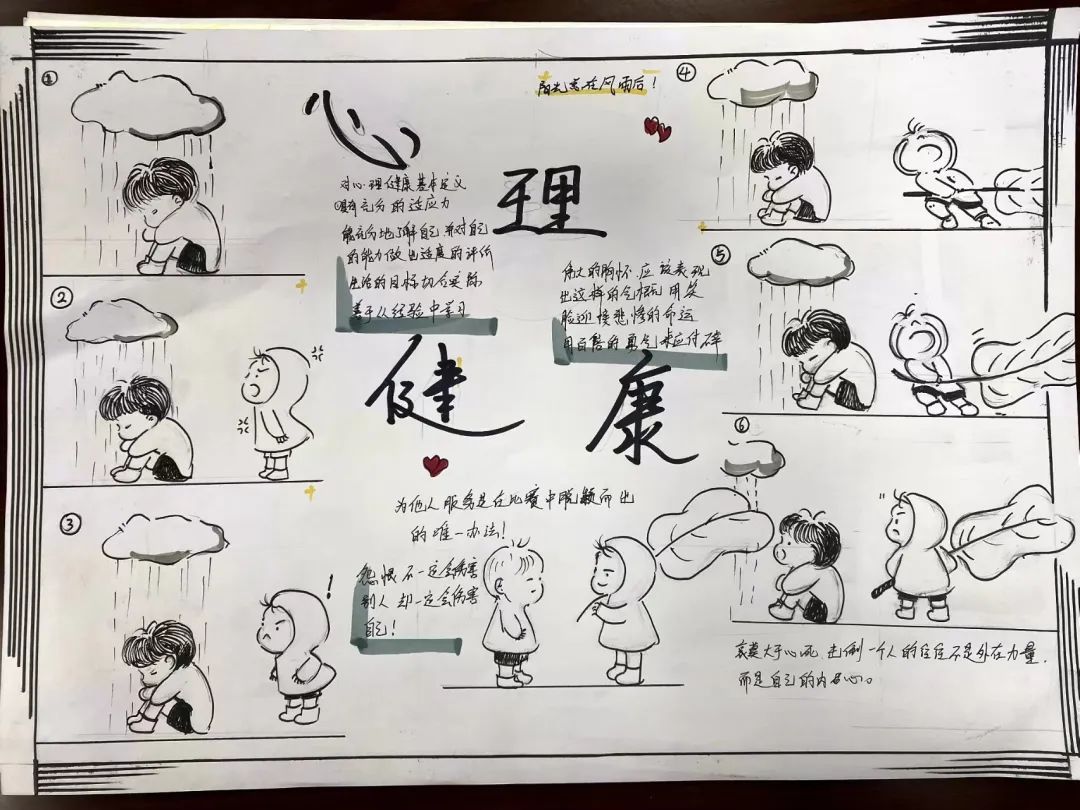 ①
心理健康
对心理健康基本定义
①具有充分的适应力
能充分地了解自己 并对自己
的能力做出适度的评价
生活的目标切合实际
善于从经验中学习
②
③
阳光总在风雨后！
④
伟大的胸怀 应该表现
出这样的气概 用笑
脸迎接悲惨的命运
用百倍的勇气来应付
⑤
为他人服务是在比赛中脱颖而出
的唯一办法！
怨恨不一定会伤害
别人 却一定会伤害
自己！
⑥
哀莫大于心死，击倒一个人的往往不是外在力量，
而是自己的内心。
!